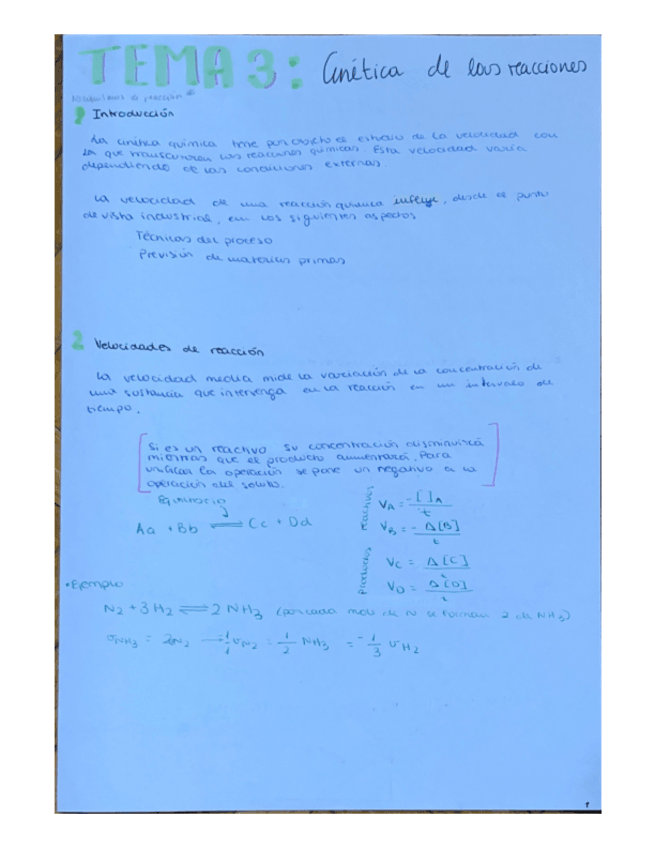 TEMA 3: Cinética de las reacciones
1 Introducción
La cinética química tiene por objeto el estudio de la velocidad con
la que transcurren las reacciones químicas. Esta velocidad varía
dependiendo de las condiciones externas.
La velocidad de una reacción química influye, desde el punto
de vista industrial, en los siguientes aspectos
Técnicas del proceso
Previsión de materias primas
2 Velocidades de reacción
La velocidad media mide la variación de la concentración de
una sustancia que intervenga en la reacción en un intervalo de
tiempo.
Si es un reactivo su concentración disminuirá
mientras que el producto aumentará. Para
unificar la operación se pone un negativo a la
operación del
Equilibrio
Aa + Bb ⇌ Cc + Dd
reactivos
V_A = -[ ]_A / t
V_B = - Δ[B] / t
productos
V_C = Δ[C] / t
V_D = Δ[D] / t
• Ejemplo
N2 + 3H2 ⇌ 2 NH3 (por cada mol de N se forman 2 de NH3)
v_NH3 = 2N2 -1/1 v_N2 = 1/2 NH3 = -1/3 v_H2
1